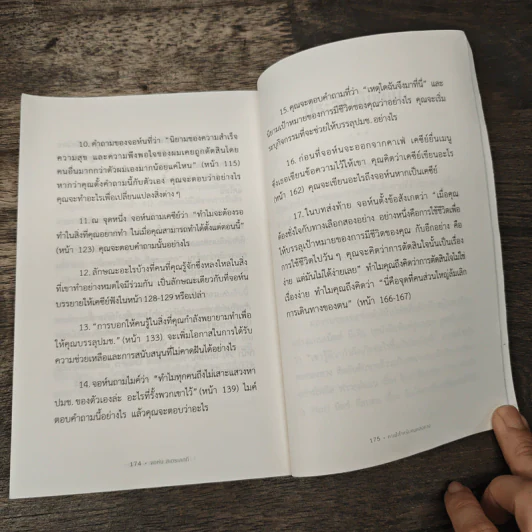 10. คำถามของจอห์นที่ว่า "นิยามของความสำเร็จ
ความสุข และความพึงพอใจของผมเคยถูกตัดสินโดย
คนอื่นมากกว่าตัวผมเองมากน้อยแค่ไหน" (หน้า 115)
หากว่าคุณตั้งคำถามนี้กับตัวเอง คุณจะตอบว่าอย่างไร
คุณจะทำอะไรเพื่อเปลี่ยนแปลงสิ่งต่าง ๆ
11. ณ จุดหนึ่ง จอห์นถามเคซีย์ว่า "ทำไมจะต้องรอ
ทำในสิ่งที่คุณอยากทำ ในเมื่อคุณสามารถทำได้ตั้งแต่ตอนนี้"
(หน้า 123) คุณจะตอบคำถามนั้นอย่างไร
12. ลักษณะอะไรบ้างที่คนที่คุณรู้จักซึ่งหลงใหลในสิ่ง
ที่เขาทำอย่างหมดใจมีร่วมกัน เป็นลักษณะเดียวกับที่จอห์น
บรรยายให้เคซีย์ฟังในหน้า 128-129 หรือเปล่า
13. "การบอกให้คนรู้ในสิ่งที่คุณกำลังพยายามทำเพื่อ
ให้คุณบรรลุปมช." (หน้า 133) จะเพิ่มโอกาสในการได้รับ
ความช่วยเหลือและการสนับสนุนที่ไม่คาดฝันได้อย่างไร
14. จอห์นถามไมค์ว่า "ทำไมทุกคนถึงไม่เสาะแสวงหา
ปมช. ของตัวเองล่ะ อะไรที่รั้งพวกเขาไว้" (หน้า 139) ไมค์
ตอบคำถามนี้อย่างไร แล้วคุณจะตอบว่าอะไร
174
15. คุณจะตอบคำถามที่ว่า "เหตุใดฉันจึงมาที่นี่" และ
นิยามเป้าหมายของการมีชีวิตของคุณว่าอย่างไร คุณจะเริ่ม
ระบุกิจกรรมที่จะช่วยให้บรรลุปมช. อย่างไร
16. ก่อนที่จอห์นจะออกจากคาเฟ่ เคซีย์ยื่นเมนู
ซึ่งเธอเขียนข้อความไว้ให้เขา คุณคิดว่าเคซีย์เขียนอะไร
(หน้า 162) คุณจะเขียนอะไรถึงจอห์นหากเป็นเคซีย์
17. ในบทส่งท้าย จอห์นตั้งข้อสังเกตว่า "เมื่อคุณ
ต้องชั่งใจกับทางเลือกสองอย่าง อย่างหนึ่งคือการใช้ชีวิตเพื่อ
ให้บรรลุเป้าหมายของการมีชีวิตของคุณ กับอีกอย่าง คือ
การใช้ชีวิตไปวัน ๆ คุณจะคิดว่าการตัดสินใจนั้นเป็นเรื่อง
ง่าย แต่มันไม่ได้ง่ายเลย" ทำไมคุณถึงคิดว่าการตัดสินใจไม่ใช่
เรื่องง่าย ทำไมคุณถึงคิดว่า "นี่คือจุดที่คนส่วนใหญ่ล้มเลิก
การเดินทางของตน" (หน้า 166-167)
175